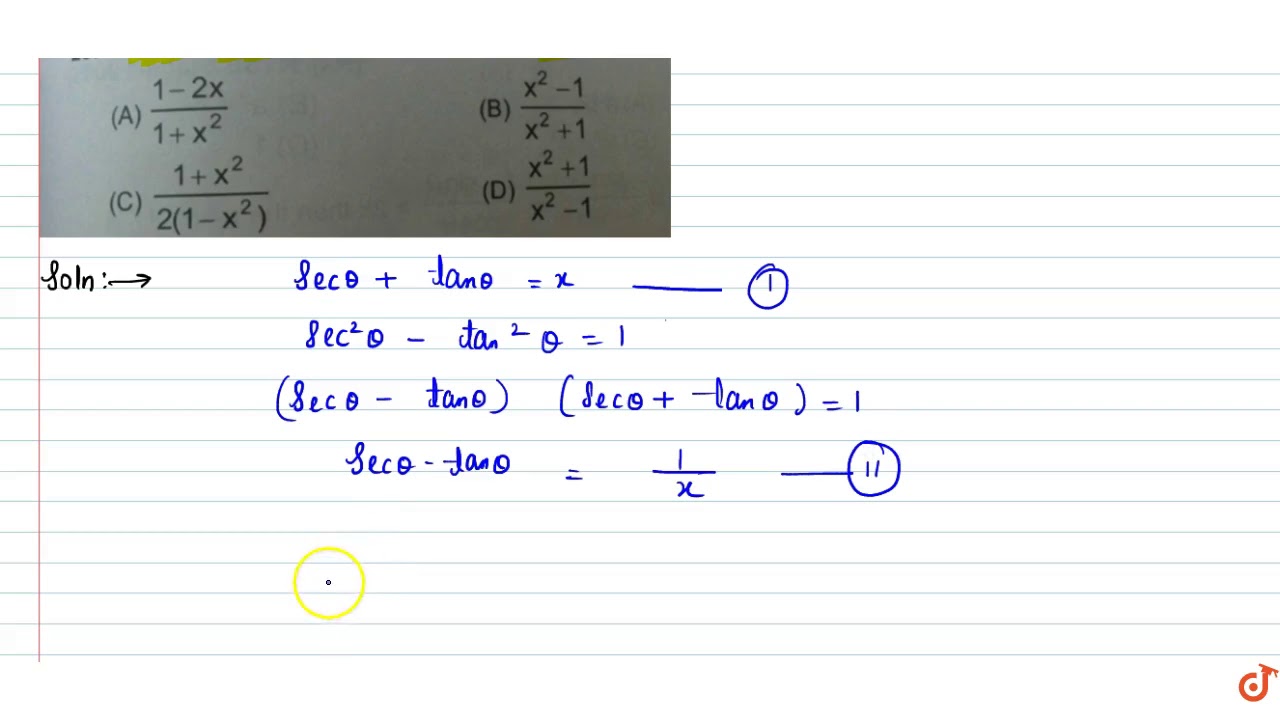 (A) (1 – 2x)/(1 + x²) (B) (x² – 1)/(x² + 1)
(C) (1 + x²)/(2(1 – x²)) (D) (x² + 1)/(x² – 1)
Soln:→ Secθ + tanθ = x —— I
Sec²θ - tan²θ = 1
(Secθ - tanθ) (Secθ + tanθ) = 1
Secθ - tanθ = 1/x —— II